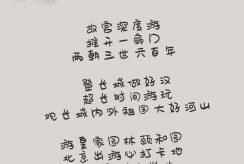 故宫深度游
推开一扇门
两朝三世六百年
登长城做好汉
超长时间游玩
观长城内外祖国大好河山
游皇家园林颐和园
北京出游必打卡地